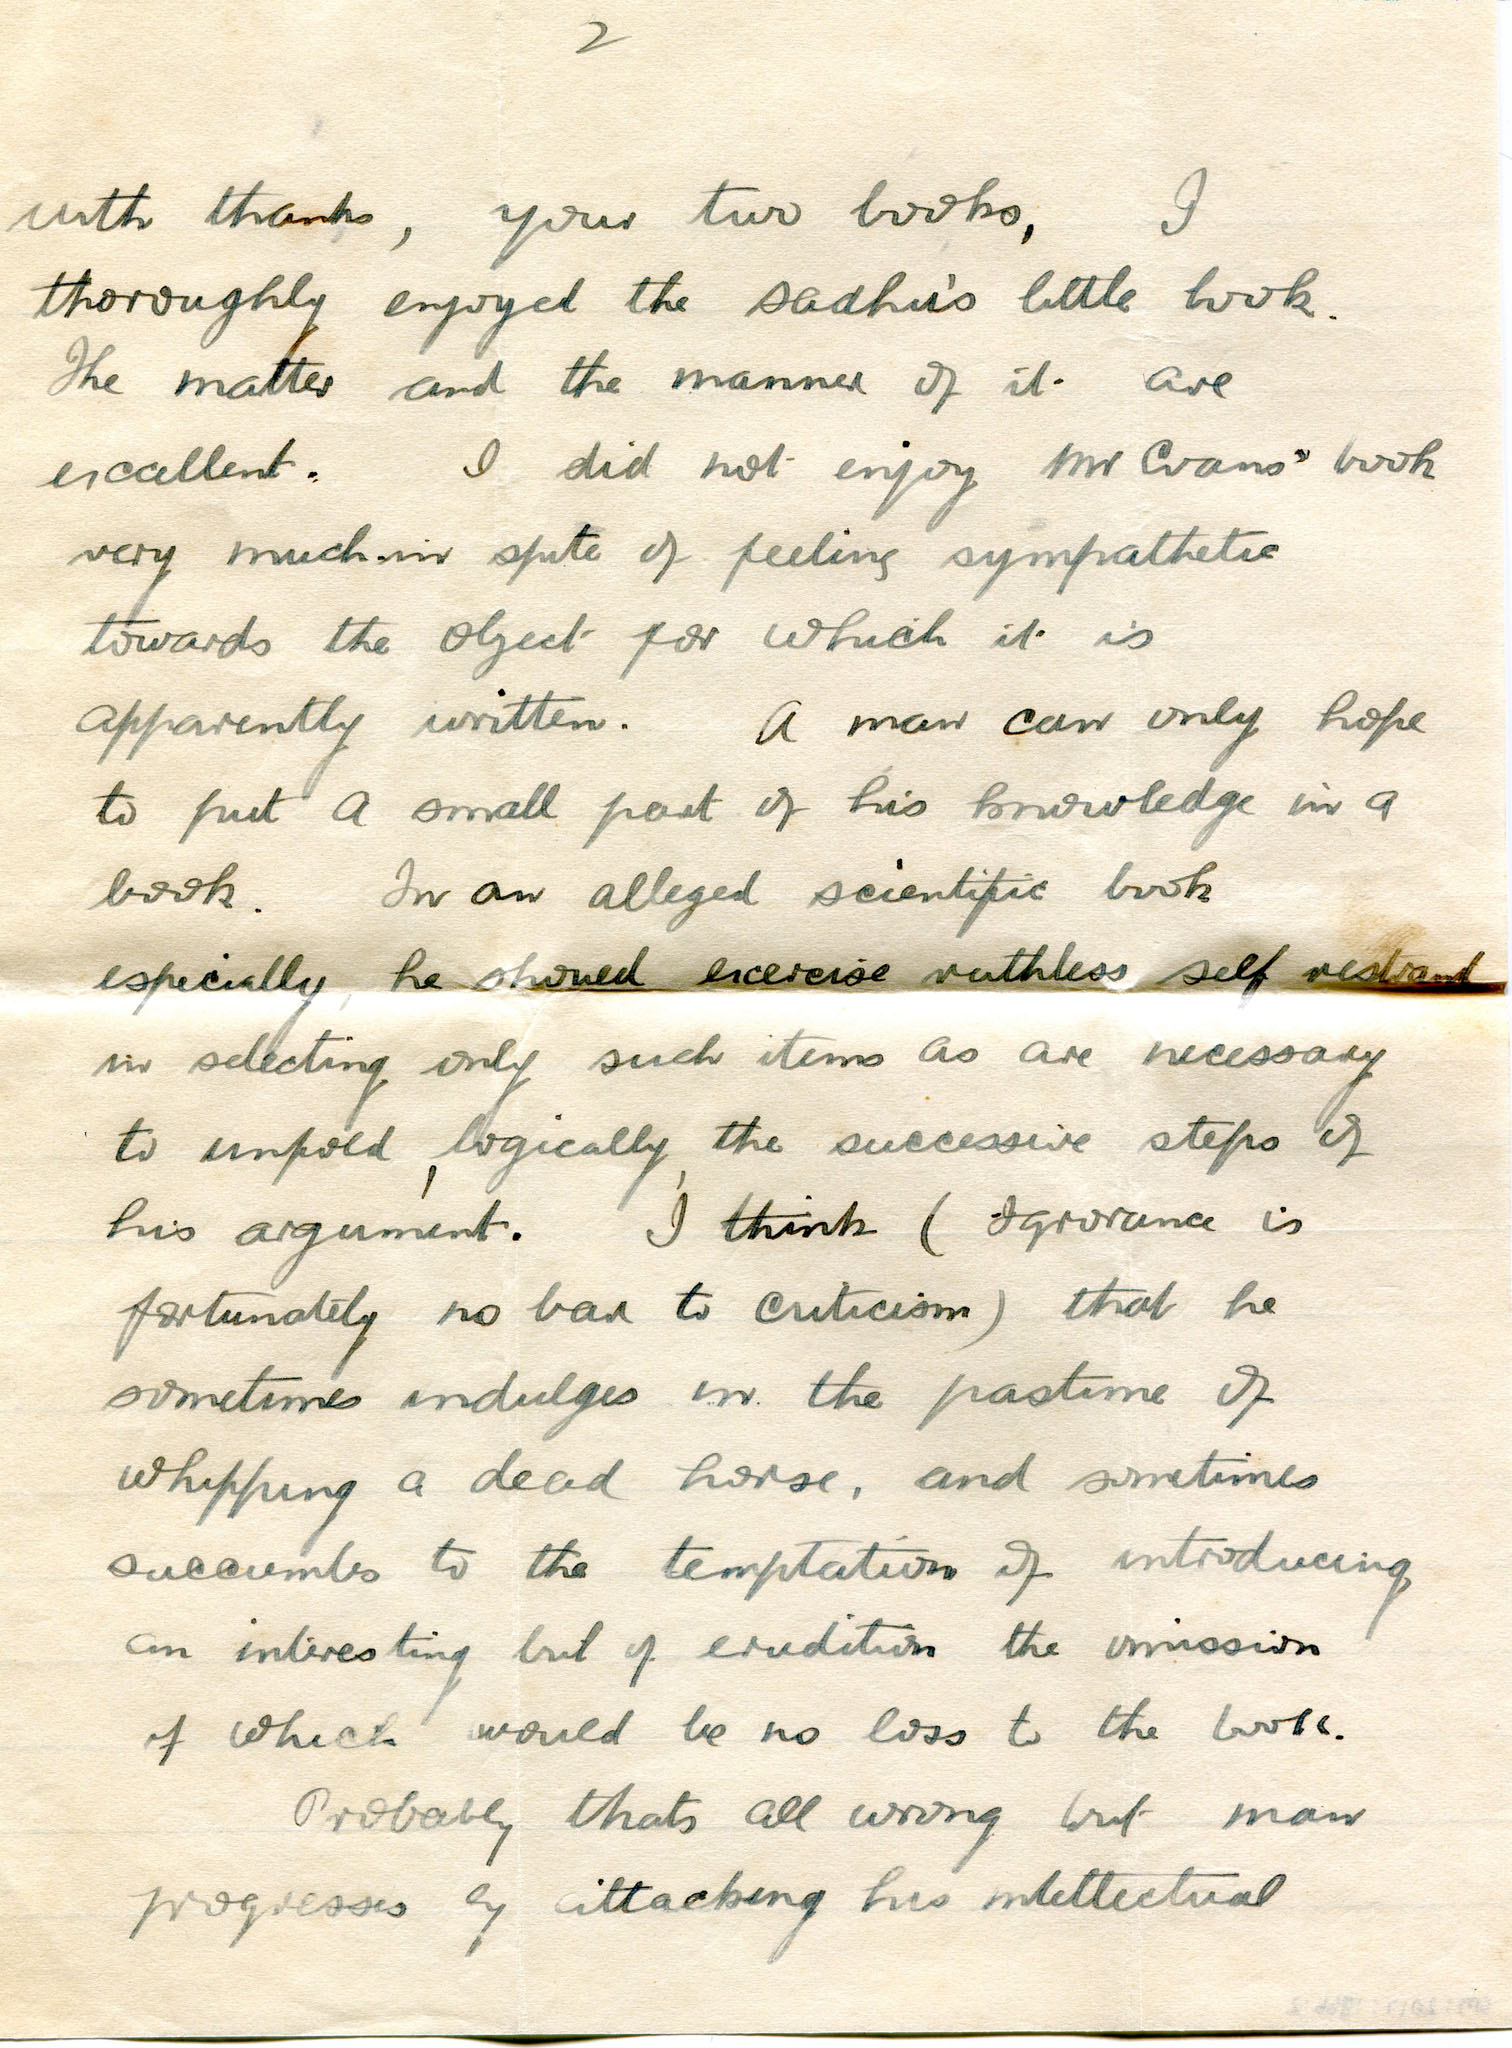 2
with thanks, your two books, I
thoroughly enjoyed the Sadhu's little book.
The matter and the manner of it are
excellent. I did not enjoy Mr Evans' book
very much in spite of feeling sympathetic
towards the object for which it is
apparently written. A man can only hope
to put a small part of his knowledge in a
book. In an alleged scientific book
especially, he should exercise ruthless self restraint
in selecting only such items as are necessary
to unfold, logically, the successive steps of
his argument. I think (Ignorance is
fortunately no bar to criticism) that he
sometimes indulges in the pastime of
whipping a dead horse, and sometimes
succumbs to the temptation of introducing
an interesting bit of erudition the omission
of which would be no loss to the book.
Probably thats all wrong but man
progresses by attacking his intellectual